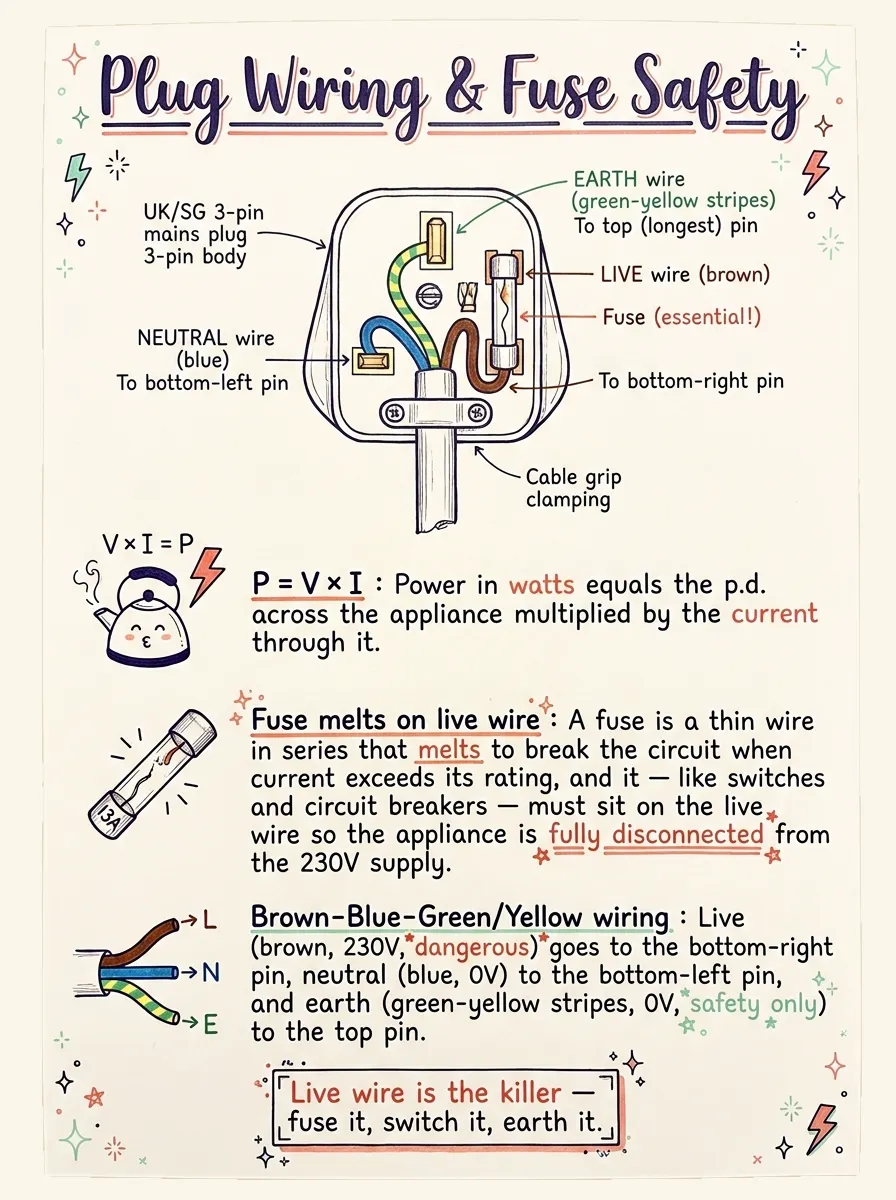 Plug Wiring & Fuse Safety
UK/SG 3-pin
mains plug
3-pin body
EARTH wire
(green-yellow stripes)
To top (longest) pin
LIVE wire (brown)
Fuse (essential!)
NEUTRAL wire
(blue)
To bottom-left pin
To bottom-right pin
Cable grip
clamping
V × I = P
P = V × I : Power in watts equals the p.d.
across the appliance multiplied by the current
through it.
Fuse melts on live wire : A fuse is a thin wire
in series that melts to break the circuit when
current exceeds its rating, and it — like switches
and circuit breakers — must sit on the live
wire so the appliance is fully disconnected from
the 230V supply.
13A
Brown-Blue-Green/Yellow wiring : Live
(brown, 230V, dangerous) goes to the bottom-right
pin, neutral (blue, 0V) to the bottom-left pin,
and earth (green-yellow stripes, 0V, safety only)
to the top pin.
L
N
E
Live wire is the killer —
fuse it, switch it, earth it.